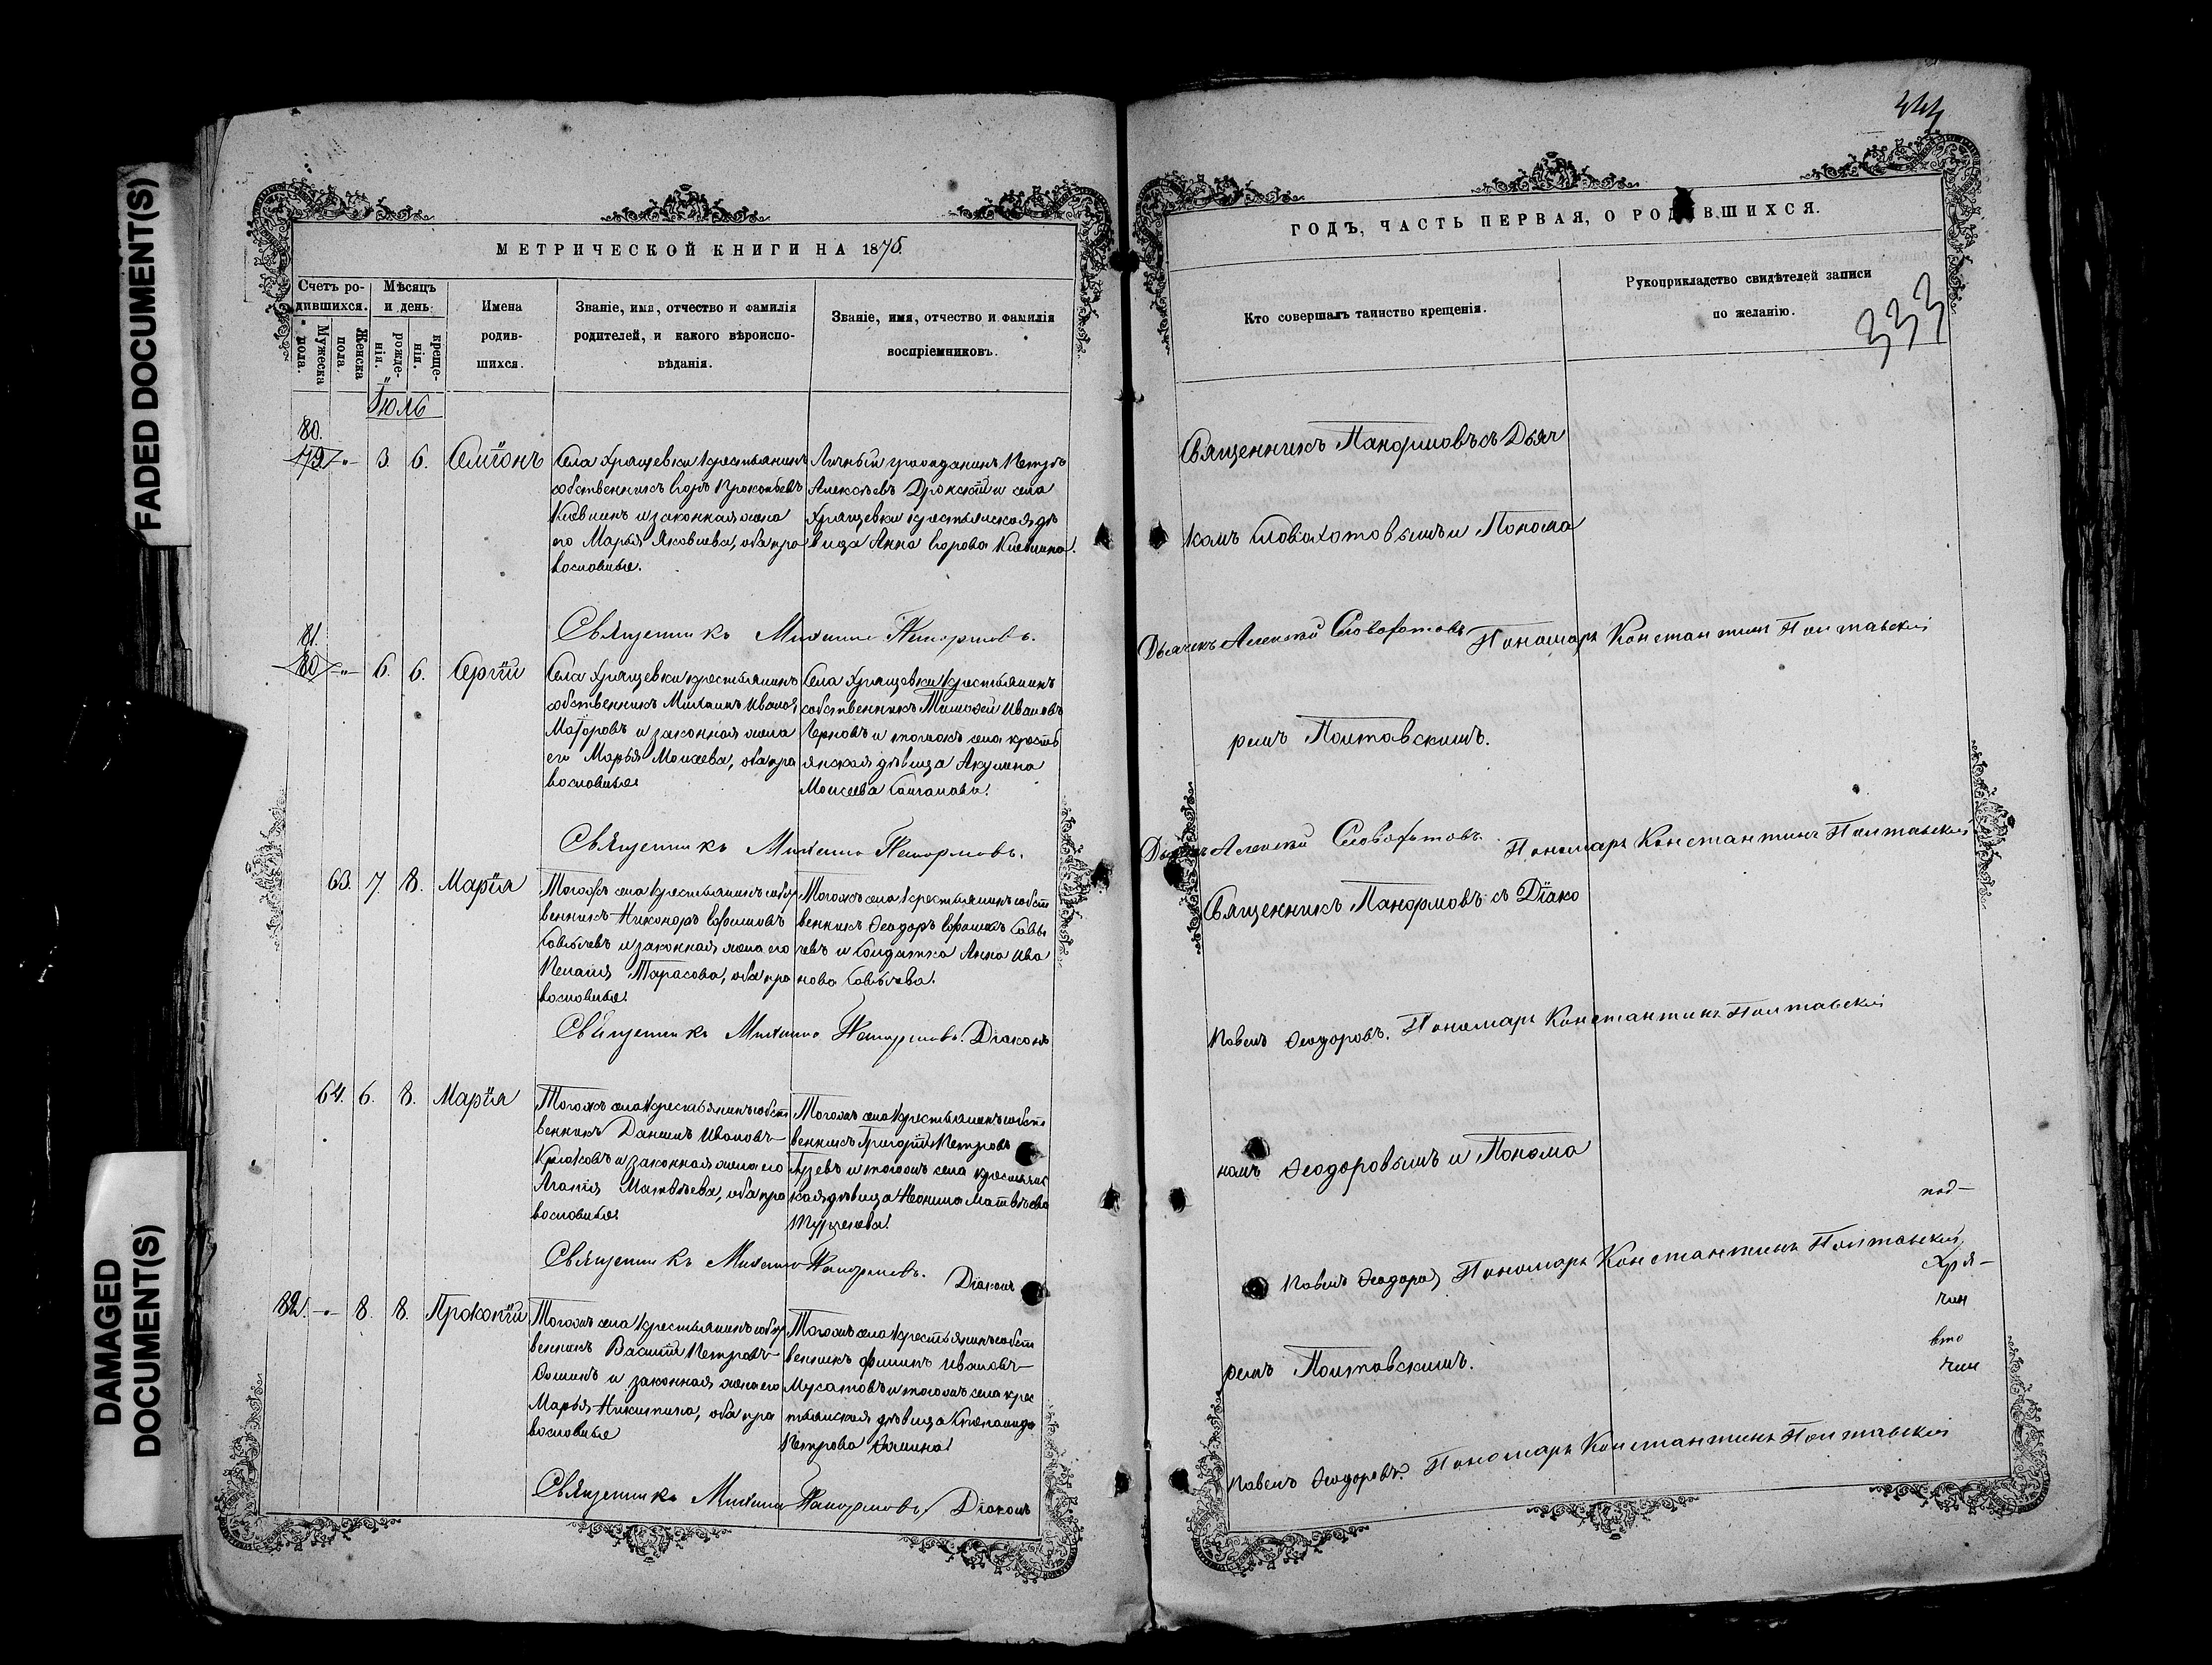 FADED DOCUMENT(S)
DAMAGED
DOCUMENT(S)
МЕТРИЧЕСКОЙ КНИГИ НА 1875.
Счетъ ро-
дившихся.
Мужеска
пола.
Женска
пола.
Мѣсяцъ
и день
рожде-
нія.
креще-
нія.
Имена
родив-
шихся.
Званіе, имя, отчество и фамилія
родителей, и какого вѣроиспо-
вѣданія.
Званіе, имя, отчество и фамилія
воспріемниковъ.
Іюль
80.
79. -"- 3. 6. Симеонъ
Села Хрящевки крестьянинъ
собственникъ Егоръ Прокопьевъ
и законная жена
его Марья Яковлева, оба пра
вославные.
Личный гражданинъ Петръ
Алексѣевъ и села
Хрящевки крестьянская дѣ
вица Анна Егорова
Священникъ Михаилъ Панормовъ.
81.
80 -"- 6. 6. Сергій
Села Хрящевки крестьянинъ
собственникъ Михаилъ Иванов
Маіоровъ и законная жена
его Марья Моисеева, оба пра
вославные
Села Хрящевки крестьянинъ
собственникъ Тимоѳей Ивановъ
и тогожъ села кресть
янская дѣвица Акулина
Моисеева
Священникъ Михаилъ Панормовъ.
63. 7. 8. Марія
Тогожъ села крестьянинъ собст
венникъ Никоноръ Ефимовъ
и законная жена его
Пелагія Тарасова, оба пра
вославные.
Тогожъ села крестьянинъ собст
венникъ Ѳеодоръ
и солдатка Анна Ива
нова
Священникъ Михаилъ Панормовъ. Діаконъ
64. 6. 8. Марія
Тогожъ села крестьянинъ собст
венникъ Даніилъ Ивановъ
Крюковъ и законная жена его
Агафія Матвѣева, оба пра
вославные
Тогожъ села крестьянинъ собст
венникъ Григорій Петровъ
и тогожъ села крестьянс
кая дѣвица Матвѣева
Священникъ Михаилъ Панормовъ. Діаконъ
82. -"- 8. 8. Прокопій
Тогожъ села крестьянинъ собст
венникъ Василій Петровъ
Ѳоминъ и законная жена его
Марья Никитина, оба пра
вославные
Тогожъ села крестьянинъ собст
венникъ Филипъ Ивановъ
Мусатовъ и тогожъ села крес
тьянская дѣвица
Петрова Ѳомина
Священникъ Михаилъ Панормовъ, Діаконъ
ГОДЪ, ЧАСТЬ ПЕРВАЯ, О РОДИВШИХСЯ.
Кто совершалъ таинство крещенія.
Рукоприкладство свидѣтелей записи
по желанію.
333
Священникъ Панормовъ съ Дьяч
комъ Словохотовымъ и Понома
Дьячекъ Алексѣй Словохотовъ Пономарь Константинъ Полтавскій
ремъ Полтавскимъ.
Дьячекъ Алексѣй Словохотовъ. Пономарь Константинъ Полтавскій
Священникъ Панормовъ съ Діако
Павелъ Ѳеодоровъ. Пономарь Константинъ Полтавскій
номъ Ѳеодоровымъ и Понома
под-
Павелъ Ѳеодоровъ Пономарь Константинъ Полтавскій
Хря-
ремъ Полтавскимъ.
Павелъ Ѳеодоровъ. Пономарь Константинъ Полтавскій